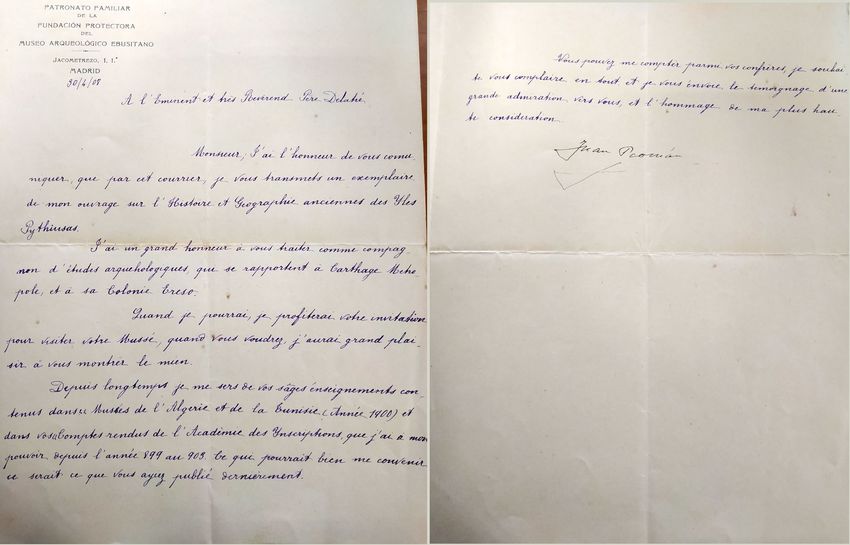 PATRONATO FAMILIAR
DE LA
FUNDACIÓN PROTECTORA
DEL
MUSEO ARQUEOLÓGICO EBUSITANO
JACOMETREZO, 1, 1.º
MADRID
30/4/08
A l'Eminent et très Révérend Père Delatié.
Monsieur, J'ai l'honneur de vous comu
niquer, que par cet courrier, je vous transmets un exemplaire
de mon ouvrage sur l'Histoire et Geographie anciennes des Yles
Pythiusas.
J'ai un grand honneur à vous traiter comme compag-
non d'études arquehologiques, que se rapportent à Carthage Metro
pole, et à sa Colonie Ereso.
Quand je pourrai, je profiterai votre invitation
pour visiter votre Mussé, quand vous voudrez, j'aurai grand plai-
sir à vous montrer le mien.
Depuis longtemps je me sers de vos sâges énseignements con-
tenus dans Mussées de l'Algerie et de la Tunisie, (Année 1900) et
dans vos Comptes rendus de l'Académie des Ynscriptions, que j'ai a mon
pouvoir, depuis l'année 899 au 903. Ce qui pourrait bien me convenir
ce serait ce que vous ayez publié dernièrement.
Vous pouvez me compter parmi vos confrères, je souhai
te vous complaire en tout et je vous énvoie le témoignage d'une
grande admiration vers vous, et l'hommage de ma plus hau
te consideration
Juan Román